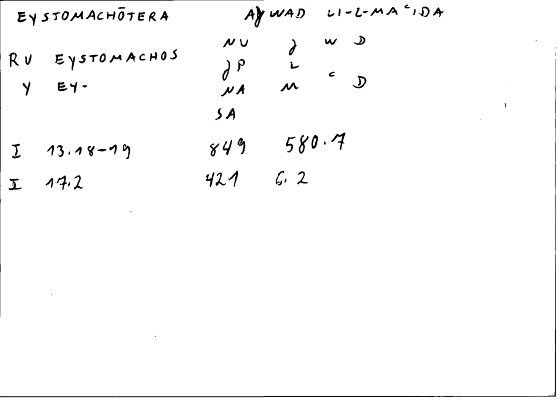 EYSTOMACHŌTERA AɈWAD LI-L-MAʿIDA
NU Ɉ W D
RU EYSTOMACHOS ɈP L
Y EY- NA M ʿ D
SA
I 13.18-19 849 580.7
I 17.2 421 6.2